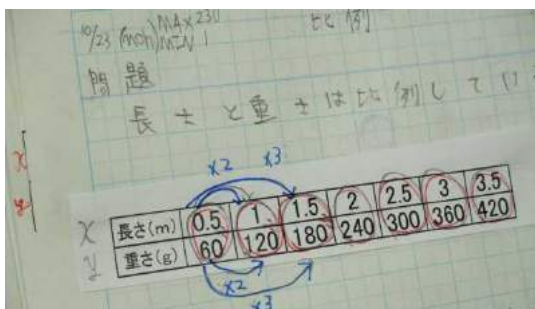 10/23 (mon) MAX 230 比例
MIN 1
問題
長さと重さは比例して
x
y
×2 ×3
x 長さ(m) 0.5 1 1.5 2 2.5 3 3.5
y 重さ(g) 60 120 180 240 300 360 420
×2
×3